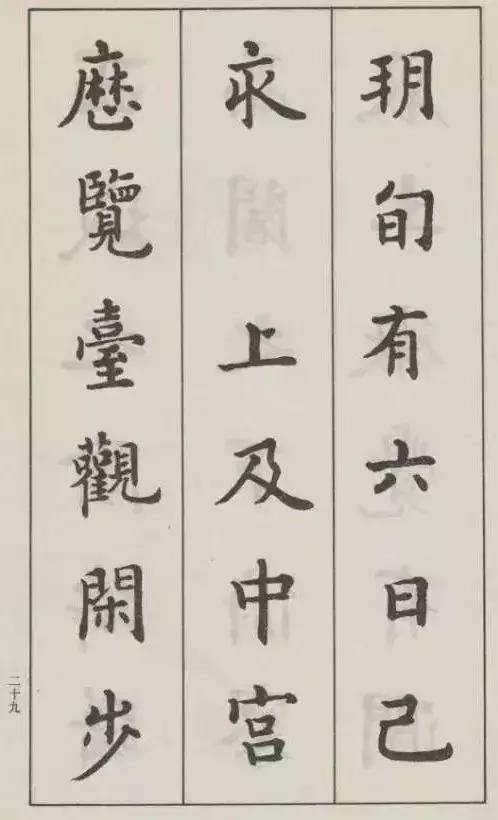 朔旬有六日己
亥 上及中宫
歷覽臺觀閑步
二十九